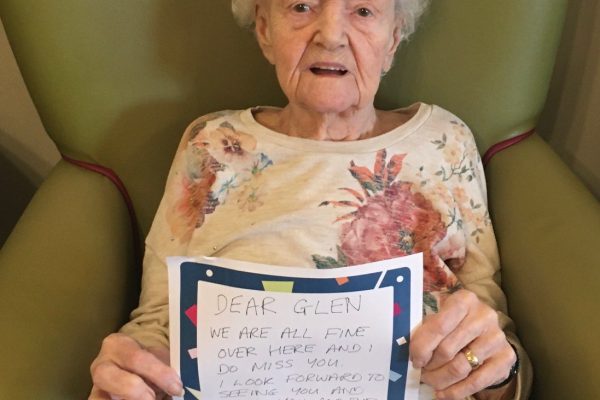 DEAR GLEN
WE ARE ALL FINE
OVER HERE AND I
DO MISS YOU.
I LOOK FORWARD TO
SEEING YOU AND